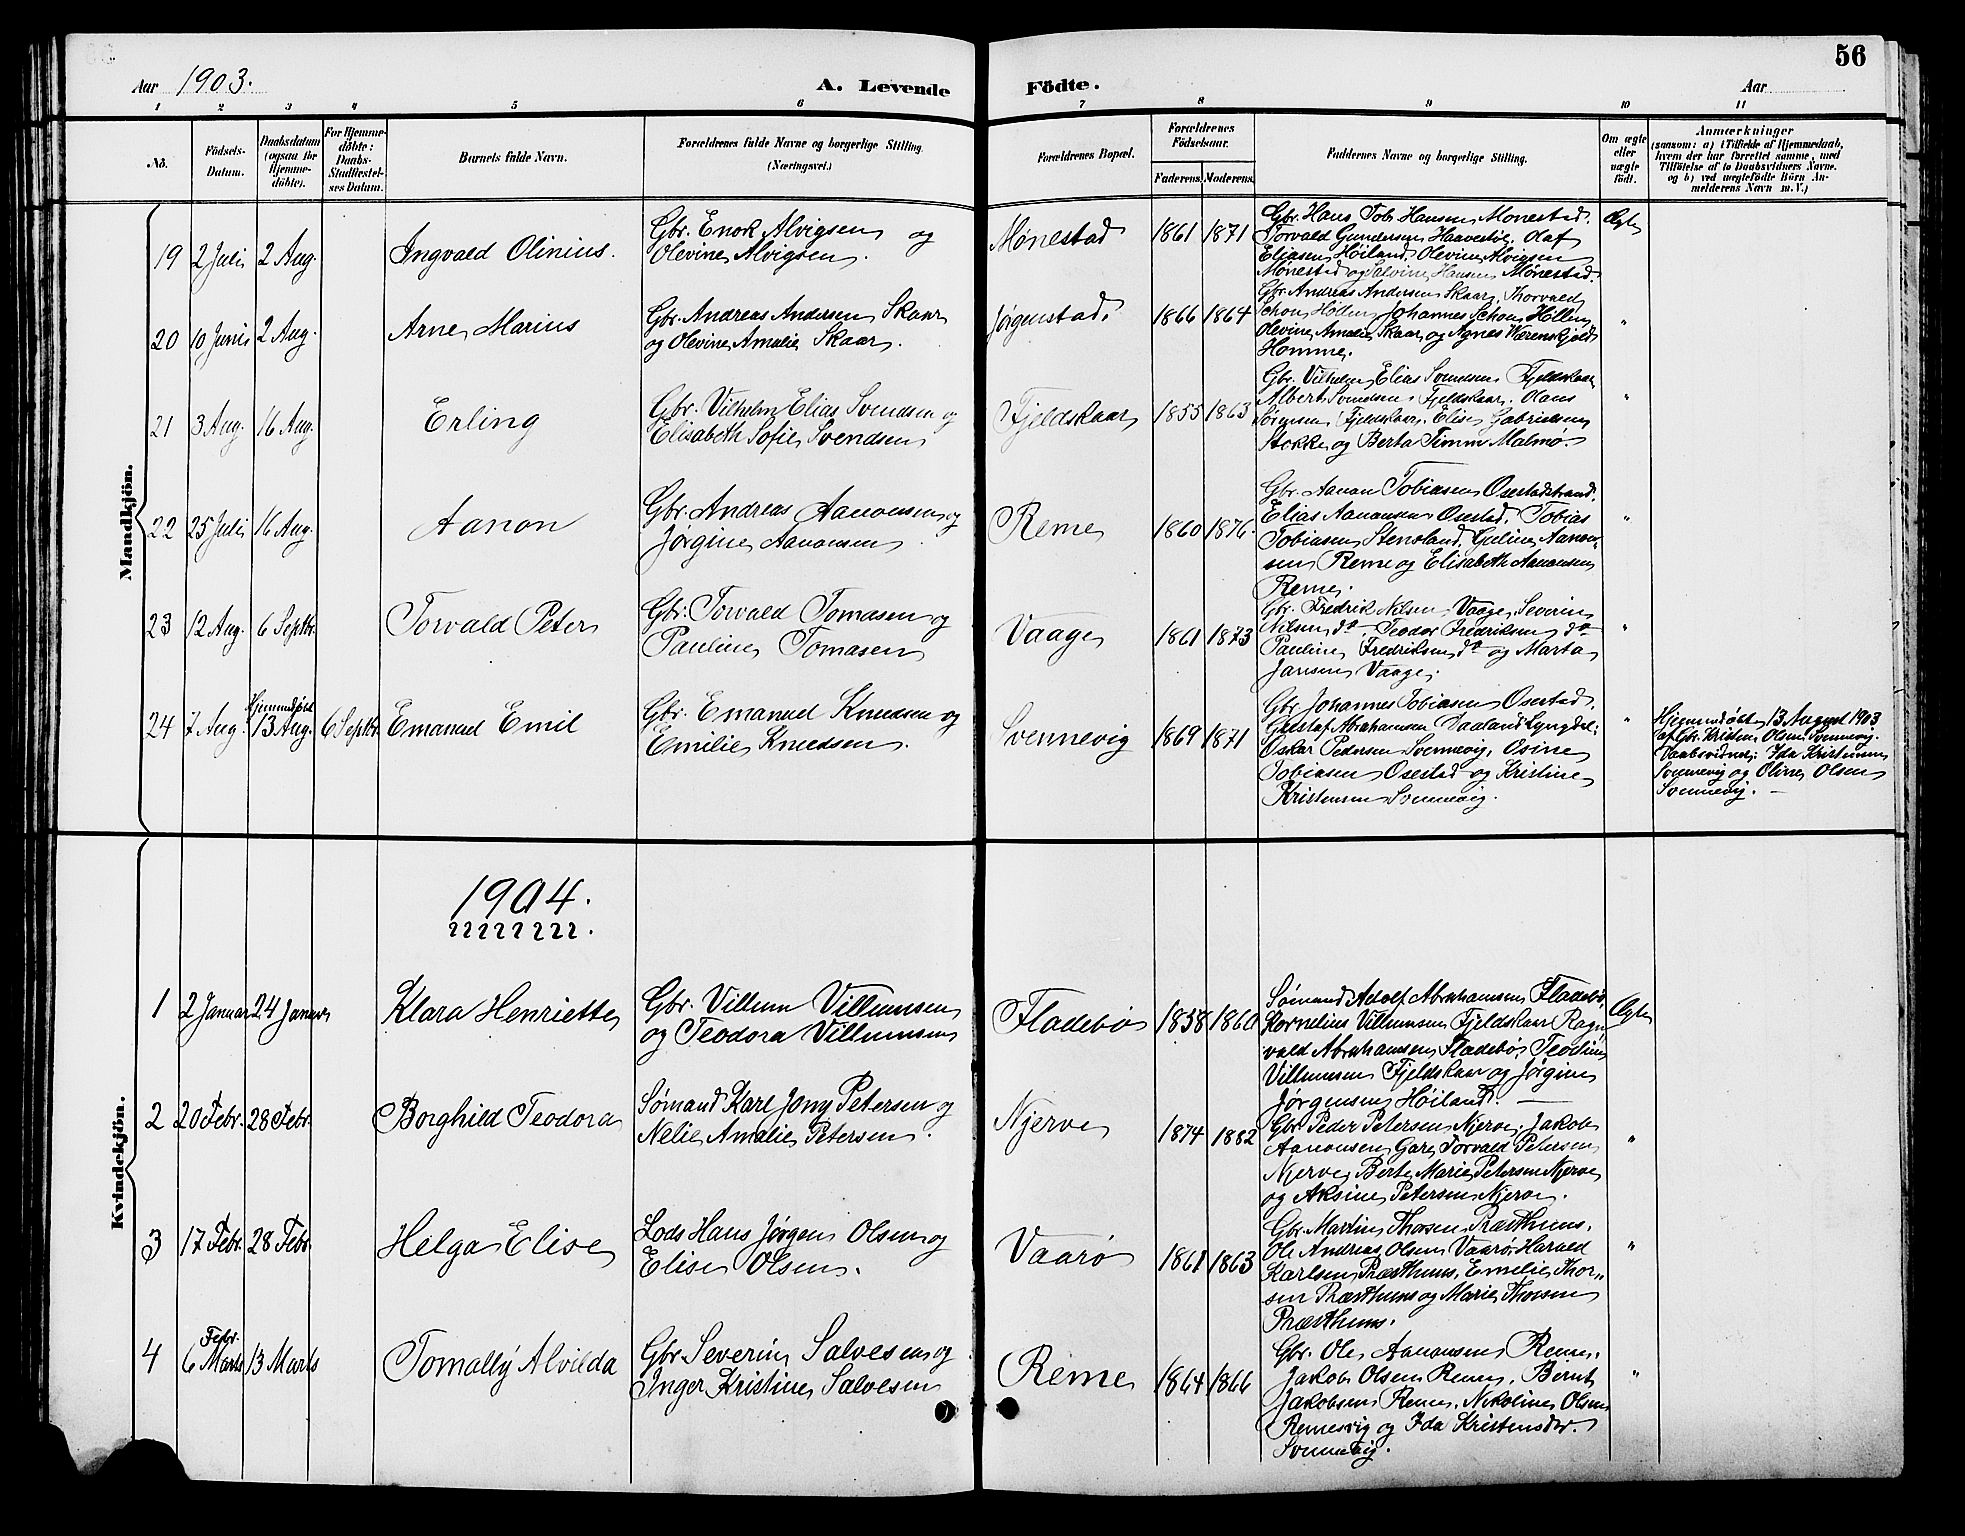 56
Aar 1903.
A. Levende Födte.
Aar
1 2 3 4 5 6 7 8 9 10 11
No.
Födsels-Datum.
Daabsdatum (ogsaa for Hjemmedöbte).
For Hjemmedöbte: Daabs-Stadfæstelses Datum.
Barnets fulde Navn.
Forældrenes fulde Navne og borgerlige Stilling. (Næringsvei.)
Forældrenes Bopæl.
Forældrenes Födselsaar.
Faderens. Moderens.
Faddernes Navne og borgerlige Stilling.
Om ægte eller uægte födt.
Anmærkninger
(saasom: a) i Tilfælde af Hjemmedaab,
hvem der har forrettet samme, med
Tilföielse af to Daabsvidners Navne.
og b) ved uægtefödte Börn An-
melderens Navn m. V.)
Mandkjön.
19 2 Juli 2 Aug. Ingvald Olinius.
Gbr. Enok Alvigsen og
Olevine Alvigsen.
Mønestad 1861 1871
Gbr. Hans Tob. Hansen Monestad.
Torvald Gundersen Haavestøl, Olaf
Eliasen Høiland, Olevine Alvigsen
Mønestad og Salvine Hansen Mønestad.
Ægte
20 10 Juni 2 Aug. Arne Marius
Gbr. Andreas Andersen Skaar
og Olevine Amalie Skaar.
Jørgenstad. 1866 1864
Gbr. Andreas Andersen Skaar, Thorvald
Schou Hillen, Johannes Schou Hillen,
Olevine Amalie Skaar og Agnes Værenskjold
Homme.
"
21 3 Aug. 16 Aug. Erling
Gbr. Vilhelm Elias Svendsen og
Elisabeth Sofie Svendsen
Fjeldskaar 1855 1863
Gbr. Vilhelm Elias Svendsen Fjeldskaar
Albert Svendsen Fjeldskaar. Olaus
Sørensen Fjeldskaar. Elise Gabrielsen
Stokke og Berta Timm Malmø.
"
22 25 Juli 16 Aug. Aanon
Gbr. Andreas Aanonsen og
Jørgine Aanonsen.
Reme 1860 1876.
Gbr. Aanon Tobiasen Osestadstrand.
Elias Aanonsen Osestad, Tobias
Tobiasen Stensland, Guline Aanon-
sen Reme og Elisabeth Aanonsen
Reme.
"
23 12 Aug. 6 Septbr. Torvald Peter
Gbr. Torvald Tomasen og
Pauline Tomasen
Vaage 1861 1873
Gbr. Fredrik Nilsen Vaage, Severin
Nilsen do. Teodor Fredriksen do
Pauline Fredriksen do og Marta
Jansen Vaage.
"
24 7 Aug. Hjemmedøbt 13 Aug. 6 Septbr. Emanuel Emil
Gbr. Emanuel Knudsen og
Emilie Knudsen.
Svennevig 1869 1871
Gbr. Johannes Tobiasen Osestad,
Gustaf Abrahamsen Daaland Lyngdal.
Oskar Pedersen Svennevig, Osine
Tobiasen Osestad og Kristine
Kristensen Svennevig.
"
Hjemmedøbt 13 August 1903
af Gbr. Kristen Olsen Svennevig.
Daabsvidner: Ida Kristensen
Svennevig og Oline Olsen
Svennevig. —
1904.
Kvindekjön.
1 2 Januar 24 Januar Klara Henriette
Gbr. Villum Villumsen
og Teodora Villumsen
Fladebø 1858 1860
Sømand Adolf Abrahamsen Fladebø,
Kornelius Villumsen Fjeldskaar Ragn-
vald Abrahamsen Fladebø, Teodine
Villumsen Fjeldskaar og Jørgine
Jørgensen Høiland. —
Ægte
2 20 Febr. 28 Febr. Borghild Teodora
Sømand Karl Jony Petersen og
Nelie Amalie Petersen.
Njerve 1874 1882
Gbr. Peder Petersen Njerve. Jakob
Aanonsen Gare Torvald Petersen
Njerve, Berte Marie Petersen Njerve
og Aksine Petersen Njerve.
"
3 17 Febr. 28 Febr. Helga Elise
Lods Hans Jørgen Olsen og
Elise Olsen.
Vaarø 1861 1863
Gbr. Martin Thorsen Præsthus.
Ole Andreas Olsen Vaarø, Harald
Karlsen Præsthus, Emelie Thor-
sen Præsthus og Marie Thorsen
Præsthus.
"
4 6 Febr. Marts 13 Marts Tomally Alvilda
Gbr. Severin Salvesen og
Inger Kristine Salvesen
Reme 1864 1866
Gbr. Ole Aanonsen Reme,
Jakob Olsen Reme, Bernt
Jakobsen Reme, Nikoline Olsen
Remesvig og Ida Kristensdr.
Svennevig.
"